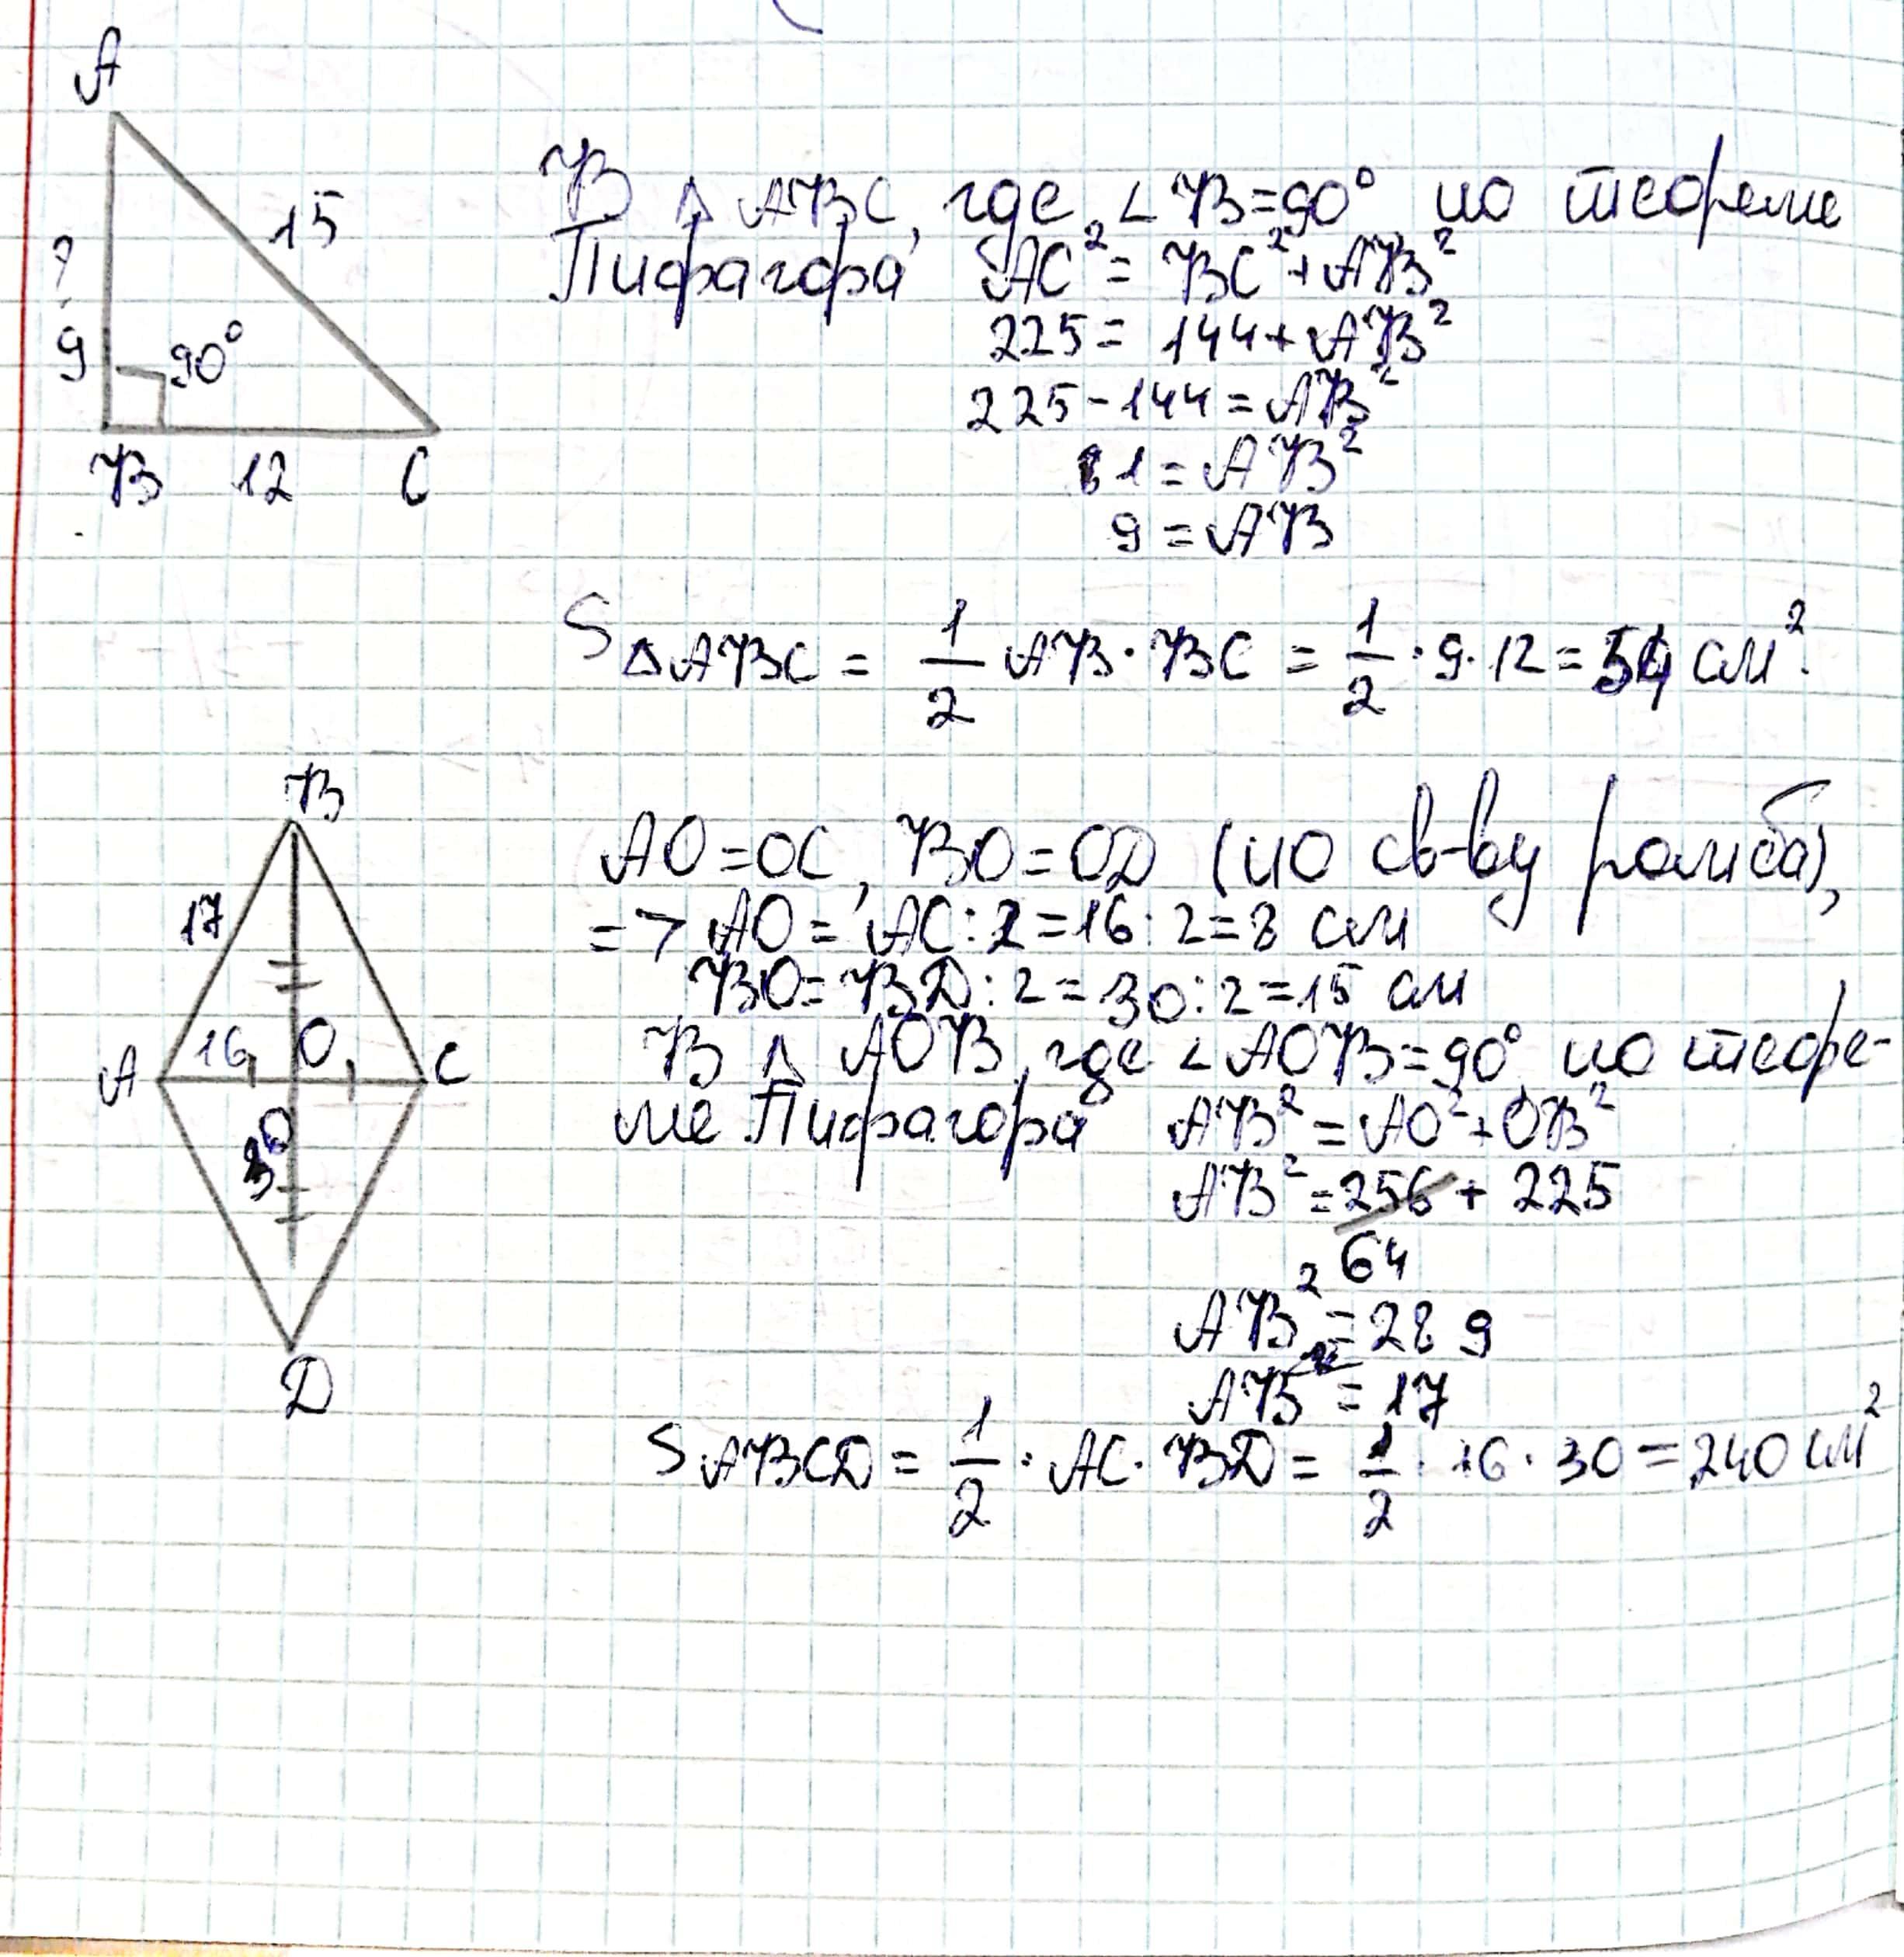 A
15
?
9
90°
B 12 C
В △ ABC, где, ∠B=90° по теореме
Пифагора AC² = BC²+AB²
225 = 144+AB²
225-144=AB²
81=AB²
9=AB
S△ABC = 1/2 AB·BC = 1/2·9·12=54 см².
B
17
A 16 O C
30
D
AO=OC, BO=OD (по св-ву ромба),
=> AO= AC:2=16:2=8 см
BO=BD:2=30:2=15 см
В △ AOB, где ∠AOB=90°, по теоре-
ме Пифагора AB²=AO²+OB²
AB²=256+225
64
AB²=289
AB=17
SABCD=1/2·AC·BD=1/2·16·30=240 см²